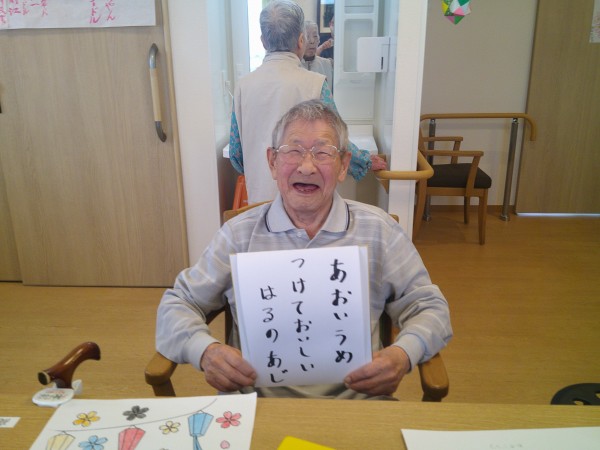 あおいうめ
つけておいしい
はるのあじ